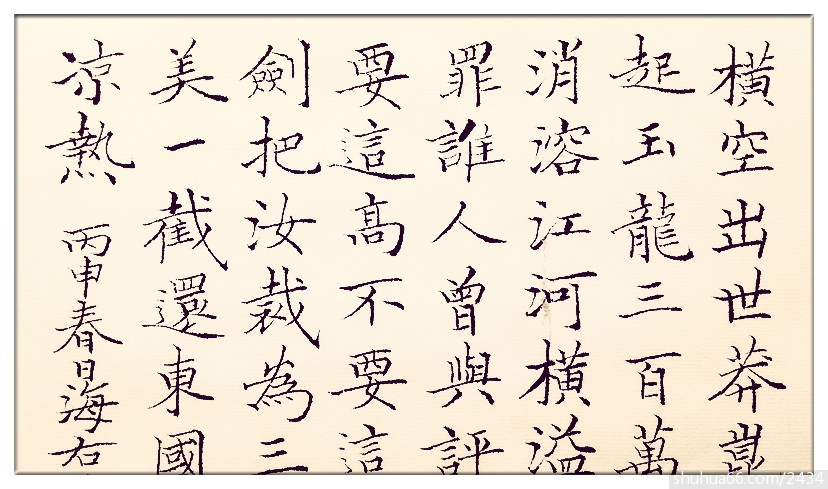 橫空出世莽崑
起玉龍三百萬
消溶江河橫溢
罪誰人曾與評
要這高不要這
劍把汝裁為三
美一截還東國
凉熱 丙申春日海右
shuhua66.com/2434